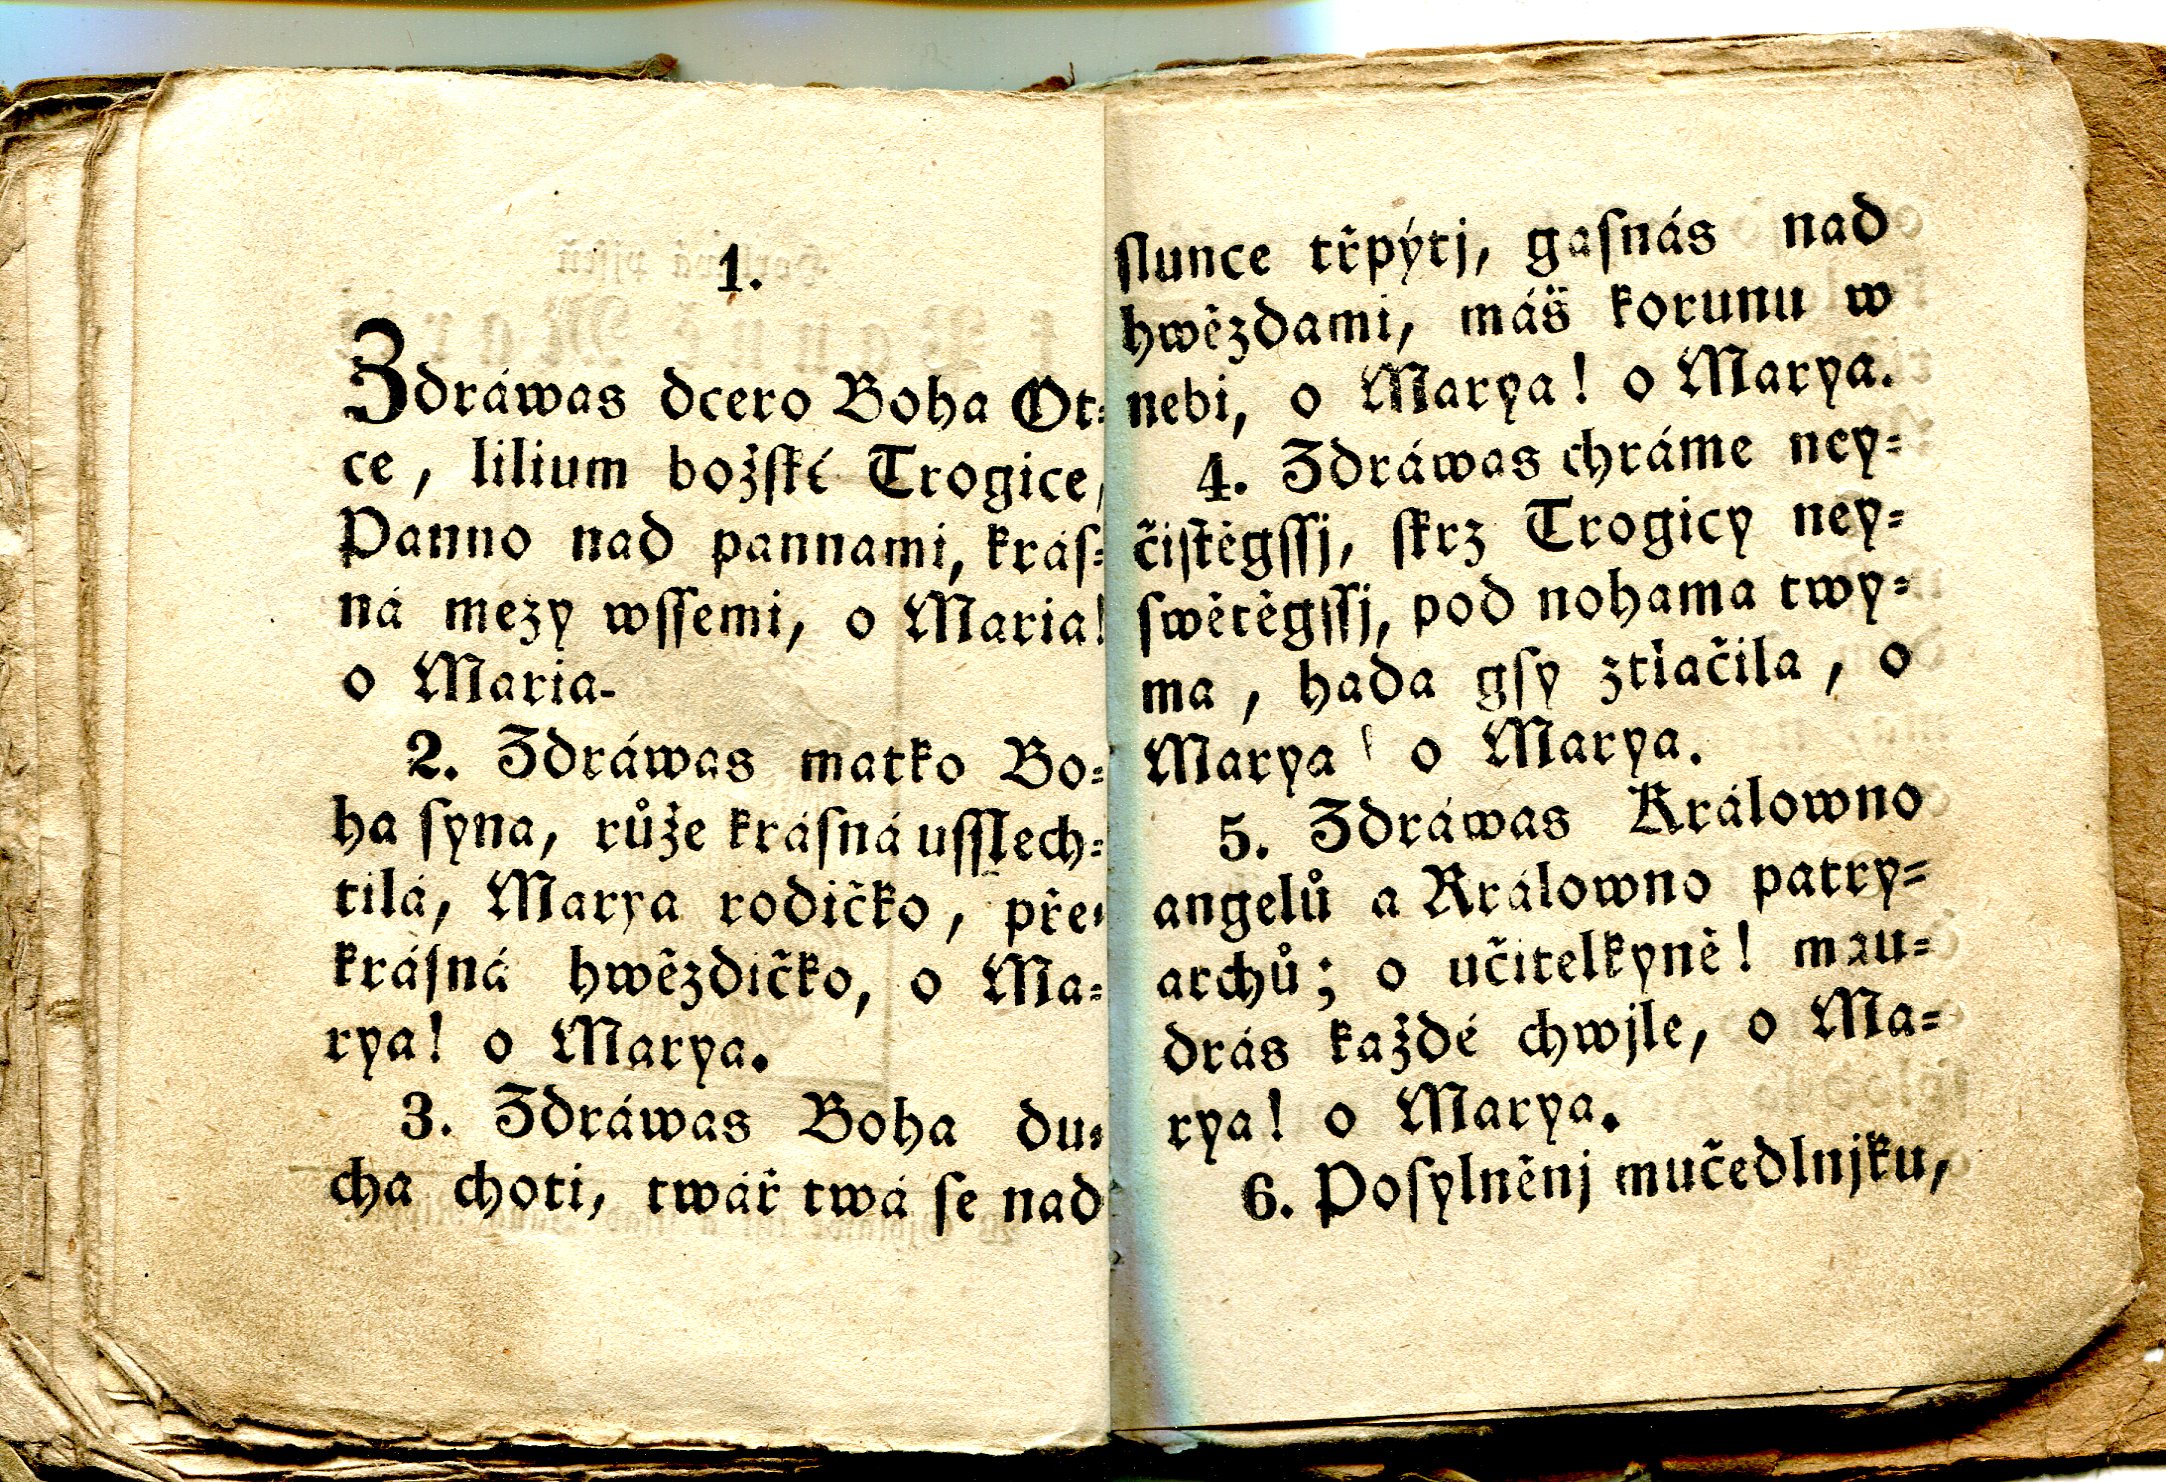 1.
Zdráwas dcero Boha Ot=
ce, lilium božſké Trogice,
Panno nad pannami, kráſ=
ná mezy wſſemi, o Maria!
o Maria-
2. Zdráwas matko Bo=
ha ſyna, růže kráſná uſſlech=
tilá, Marya rodičko, pře=
kráſná hwězdičko, o Ma=
rya! o Marya.
3. Zdráwas Boha du=
cha choti, twář twá ſe nad
ſlunce třpýtj, gaſnás nad
hwězdami, máš korunu w
nebi, o Marya! o Marya.
4. Zdráwas chráme ney=
čiſtěgſſj, ſkrz Trogicy ney=
swětěgſſj, pod nohama twy=
ma, hada gſy ztlačila, o
Marya! o Marya.
5. Zdráwas Králowno
angelů a Králowno patry=
archů; o učitelkyně! mau=
drás každé chwjle, o Ma=
rya! o Marya.
6. Poſylněnj mučedlnjku,